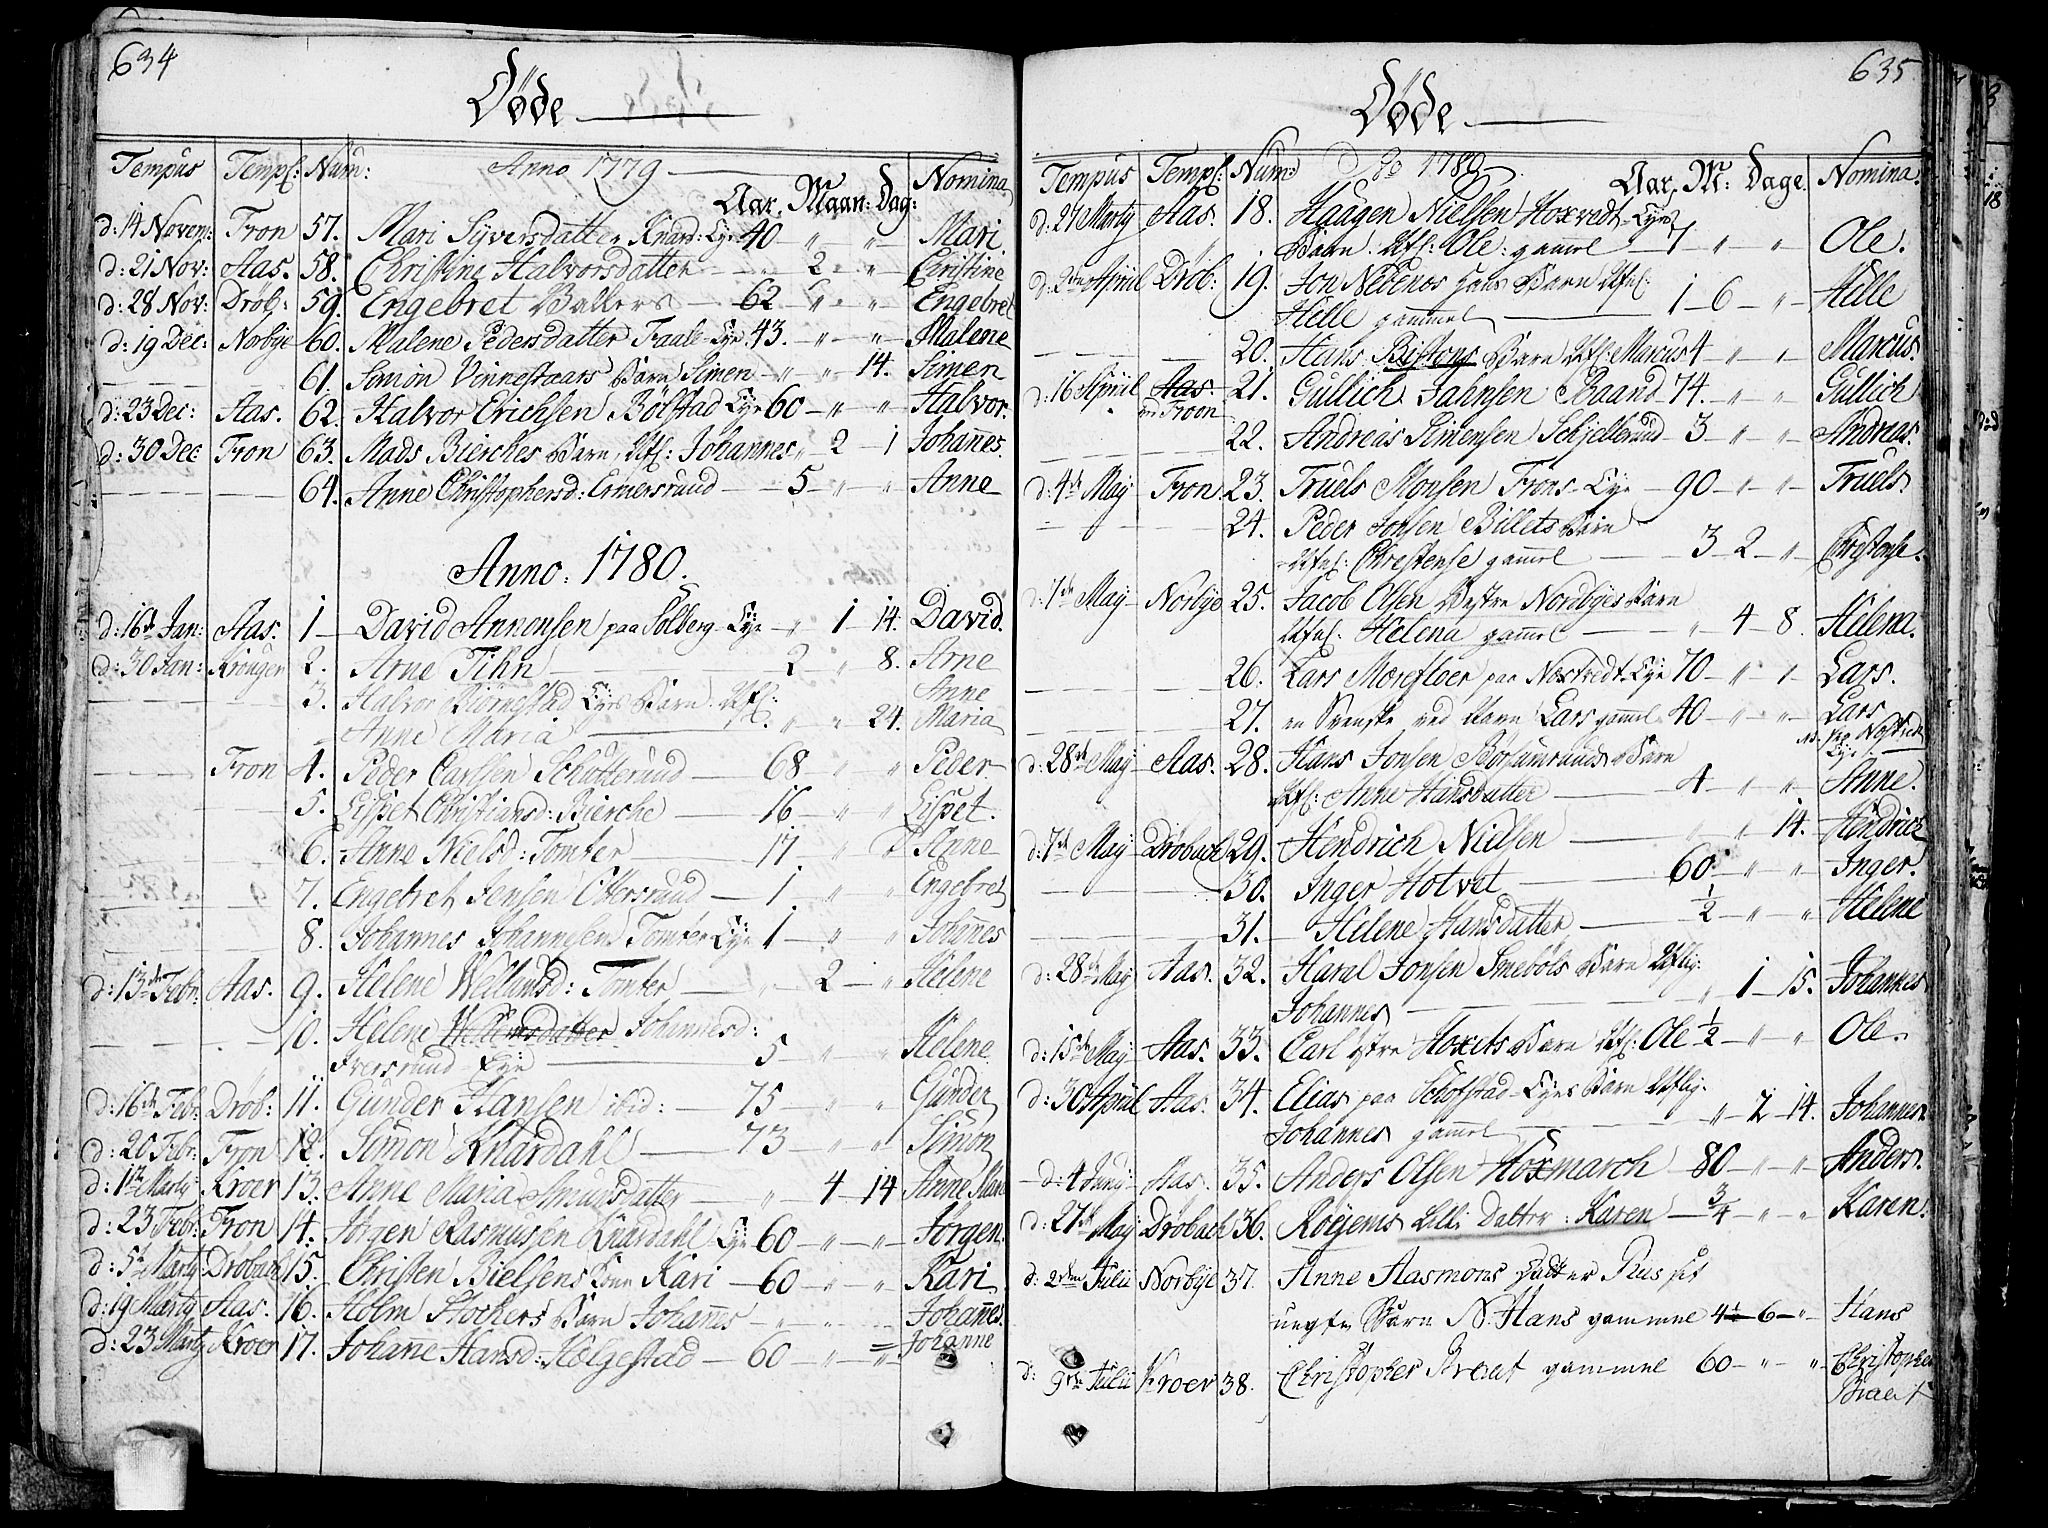 634
Døde
Tempus Templ: Num: Anno 1779 Nomina
Aar. Maan: Dag:
d: 14 Novem: Fron 57. Mari Syversdatter Knard: Eye 40 " " Mari
d: 21 Nov: Aas. 58. Christine Halvorsdatter 2 " Christine
d: 28 Nov: Drøb: 59. Engebret Ballers 62 " " Engebret
d: 19 Dec: Norbye 60. Malene Pedersdatter Faale Eye 43. " " Malene
61. Simon Vinnestaars Barn Simen " " 14. Simen
d: 23 Dec: Aas. 62. Halvor Erichsen Bølstad Eye 60 " " Halvor.
d: 30 Dec Fron 63. Mads Bierches Barn Ufl: Johannes " 2 1 Johannes.
64. Anne Christophersd: Ermersruud 5 " " Anne
Anno: 1780.
d: 16de Jan: Aas. 1 David Annonsen paa Solberg Eye " 1 14. David.
d: 30 Jan: Krouger 2. Arne Tihn 2 " 8. Arne
3. Halvor Biørnestad Eyes Barn Ufl: Anne
Anne Maria " " 24. Maria
Fron 4. Peder Carlsen Schøtterud 68 " " Peder
5. Lispet Christiansd: Bierche 16 " " Lispet.
6. Anne Nielsd: Tomter 17 " " Anne
7. Engebret Jensen Ottersruud 1. " " Engebret
8. Johannes Johannesen Tomter Eye 1 " " Johannes
d: 13de Febr: Aas. 9. Helene Wellumsd: Tomter " 2 " Helene
10. Helene Willumsdatter Johannesd:
Iversruud Eye 5 " " Helene
d: 16de Febr: Drøb: 11. Gunder Hansen ibid: 75 " " Gunder
d: 20 Febr: Fron 12. Simon Knardahl 73 " " Simon
d: 1te Marty Kroer 13. Anne Maria Amundsdatter " 4 14 Anne Maria
d: 23 Febr: Fron 14. Jørgen Rasmusen Knardahl Eye 60 " " Jørgen.
d: 5t Marty Drøbach 15. Christen Bielsens Kone Kari 60 " " Kari
d: 19 Marty Aas. 16. Holm Stockers Barn Johannes " " Johannes.
d: 23 Marty Kroer 17. Johanne Hansd: Holgestad 60 " " Johanne
635
Døde
Tempus Templ: Num: Do 1780 Nomina.
Aar. M: Dage.
d: 27 Marty Aas. 18. Haagen Nielsen Hoxvedt Eyes
Barn Ufl: Ole: gamel 7 " " Ole.
d: 2den April Drøb: 19. Jon Nebenos hans Barn Ufl:
Helle gammel 1 6 " Helle
20. Hans Bistons Barn Ufl: Marcus 4 " " Marcus.
d: 16 April Aas. 21. Gullich Jahnsen Baand 74. " " Gullich
ved Froon
22. Andreas Simensen Schjellerud 3 " " Andreas.
d: 4de May Fron 23. Truels Monsen Frons Eye 90 " " Truels.
24. Peder Jonsen Billets Barn
Ufl: Chrestense gamel 3 2 " Chrestense.
d: 7de May Norbye 25. Jacob Olsen Vestre Nordbyes Barn
Ufl: Helena gamel " 4 8. Helena.
26. Lars Morefloer paa Nostvedt Eye 70 " " Lars.
27. en Svenske ved Navn Lars gamel 40 " " Lars
Nostvedt
Eye
d: 28de May Aas. 28. Hans Jonsen Borsumruuds Barn
Ufl: Anne Hansdatter 4 " " Anne.
d: 7de May Drøbach 29. Hendrich Nielsen " " 14. Hendrich
30. Inger Hotvet 60. " " Inger.
31. Helene Hansdatter 1/2 " " Helene
d: 28de May Aas. 32. Haral Jonsen Smebøls Barn Uflig:
Johannes " 1 15. Johannes
d: 15de May Aas. 33. Carl ystre Hoxets Barn Ufl: Ole 1/2 " " Ole.
d: 30 April Aas. 34. Elias paa Schofstad Eyes Barn Uflig:
Johannes gamel " 2 14. Johannes
d: 4 Juny Aas. 35. Anders Olsen Hoxmarch 80 " " Anders.
d: 27de May Drøbach 36. Røyems Lille Datter: Karen 3/4 " " Karen.
d: 2den Julii Norbye 37. Anne Aasmons
uegte Barn N. Hans gammel 4 6 " Hans
d: 9de Julii Kroer 38. Christopher Braat gammel 60 " " Christopher
Braat